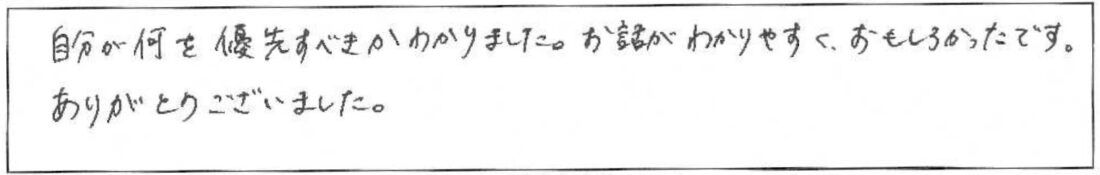 自分が何を優先すべきかわかりました。お話がわかりやすく、おもしろかったです。
ありがとうございました。